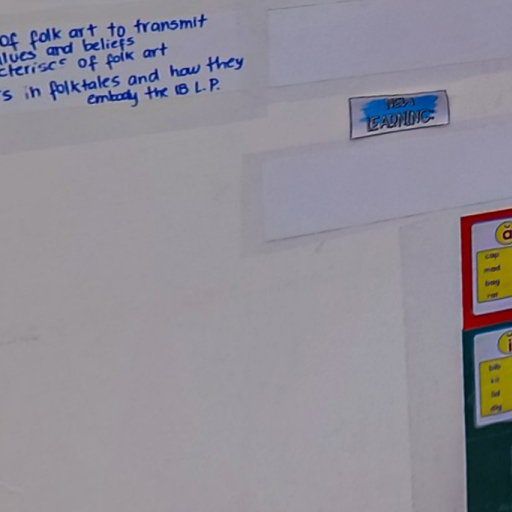 of folk art to transmit
lues and beliefs
cteriscs of folk art
s in folktales and how they
embody the IB L.P.
NEW
LEARNING
a
cap
mad
rat
i
bib
lid
dig